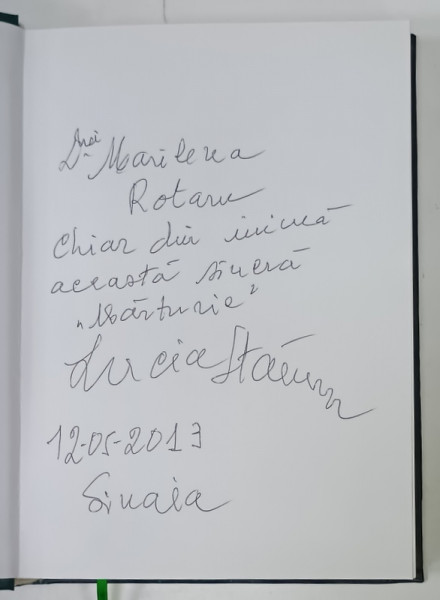 Dnei Marilena
Rotaru
Chiar din inimă
această sinceră
„Mărturie”
Lucia Stănescu
12-05-2013
Sinaia